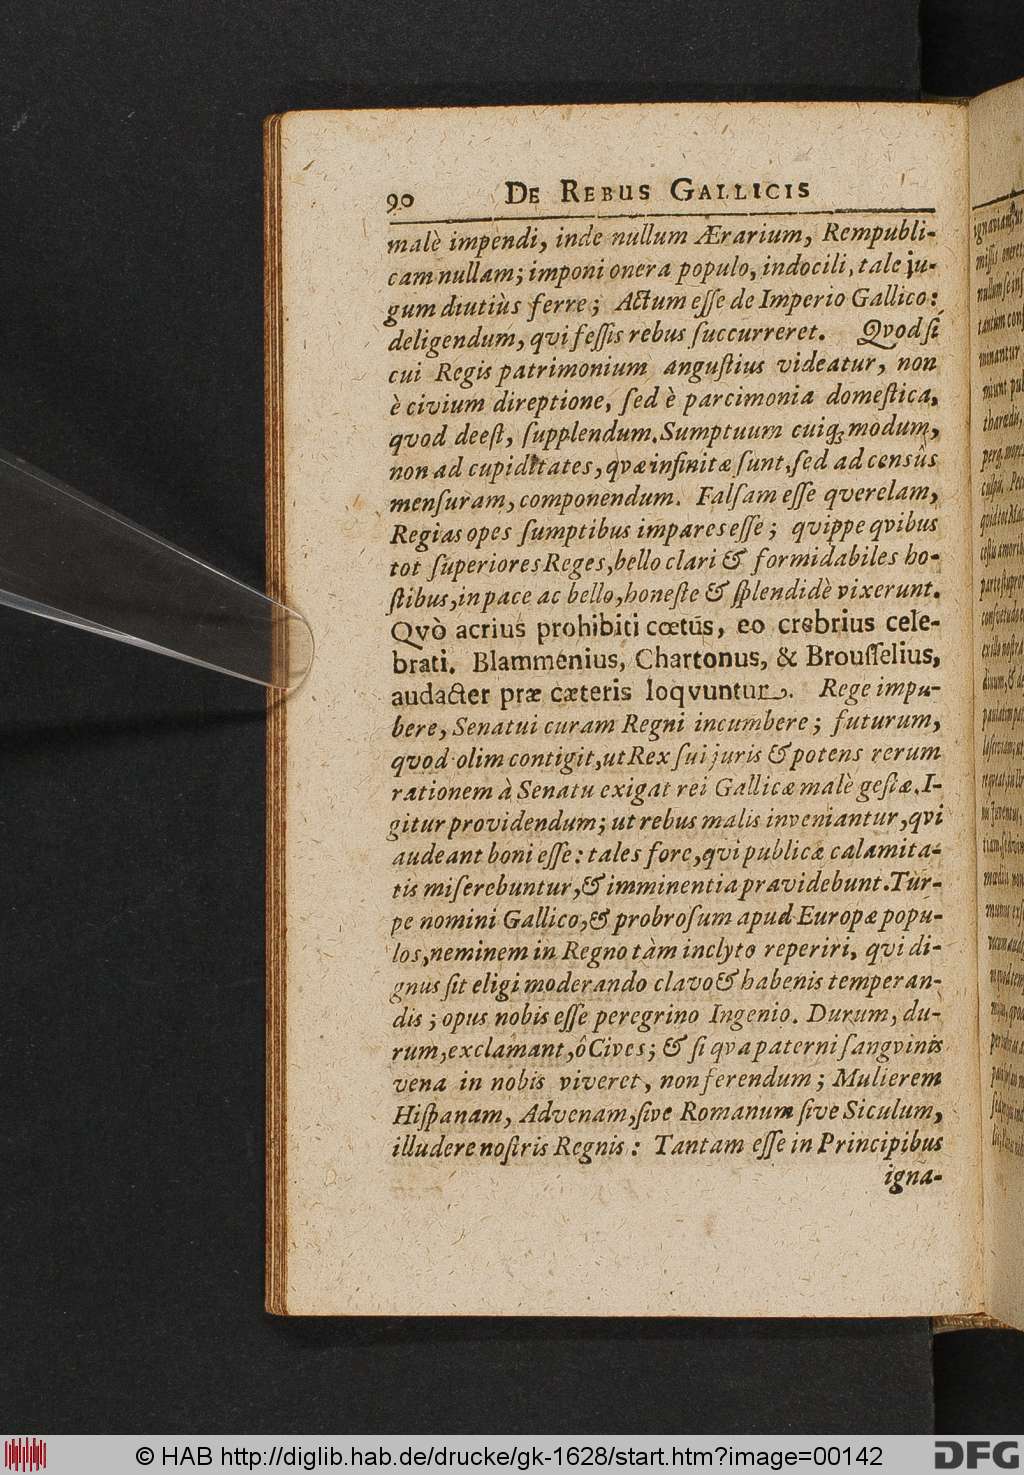 90 DE REBUS GALLICIS
malè impendi, inde nullum Ærarium, Rempubli-
cam nullam; imponi onera populo, indocili, tale ju-
gum diutiùs ferre; Actum esse de Imperio Gallico:
deligendum, qvi fessis rebus succurreret. Qvod sí
cui Regis patrimonium angustius videatur, non
è civium direptione, sed è parcimonia domestica,
qvod deest, supplendum. Sumptuum cuiqꝫ modum,
non ad cupiditates, qvæ infinitæ sunt, sed ad censûs
mensuram, componendum. Falsam esse qverelam,
Regias opes sumptibus impares esse; qvippe qvibus
tot superiores Reges, bello clari & formidabiles ho-
stibus, in pace ac bello, honeste & splendidè vixerunt.
Qvò acrius prohibiti cœtûs, eo crebrius cele-
brati. Blammenius, Chartonus, & Brousselius,
audacter præ cæteris loqvuntur. Rege impu-
bere, Senatui curam Regni incumbere; futurum,
qvod olim contigit, ut Rex sui juris & potens rerum
rationem à Senatu exigat rei Gallicæ malè gestæ. I-
gitur providendum; ut rebus malis inveniantur, qvi
audeant boni esse: tales fore, qvi publicæ calamita-
tis miserebuntur, & imminentia prævidebunt. Tur-
pe nomini Gallico, & probrosum apud Europæ popu-
los, neminem in Regno tàm inclyto reperiri, qvi di-
gnus sit eligi moderando clavo & habenis temperan-
dis; opus nobis esse peregrino Ingenio. Durum, du-
rum, exclamant, ô Cives; & si qva paterni sangvinis
vena in nobis viveret, non ferendum; Mulierem
Hispanam, Advenam, sive Romanum sive Siculum,
illudere nostris Regnis: Tantam esse in Principibus
igna-
© HAB http://diglib.hab.de/drucke/gk-1628/start.htm?image=00142
DFG